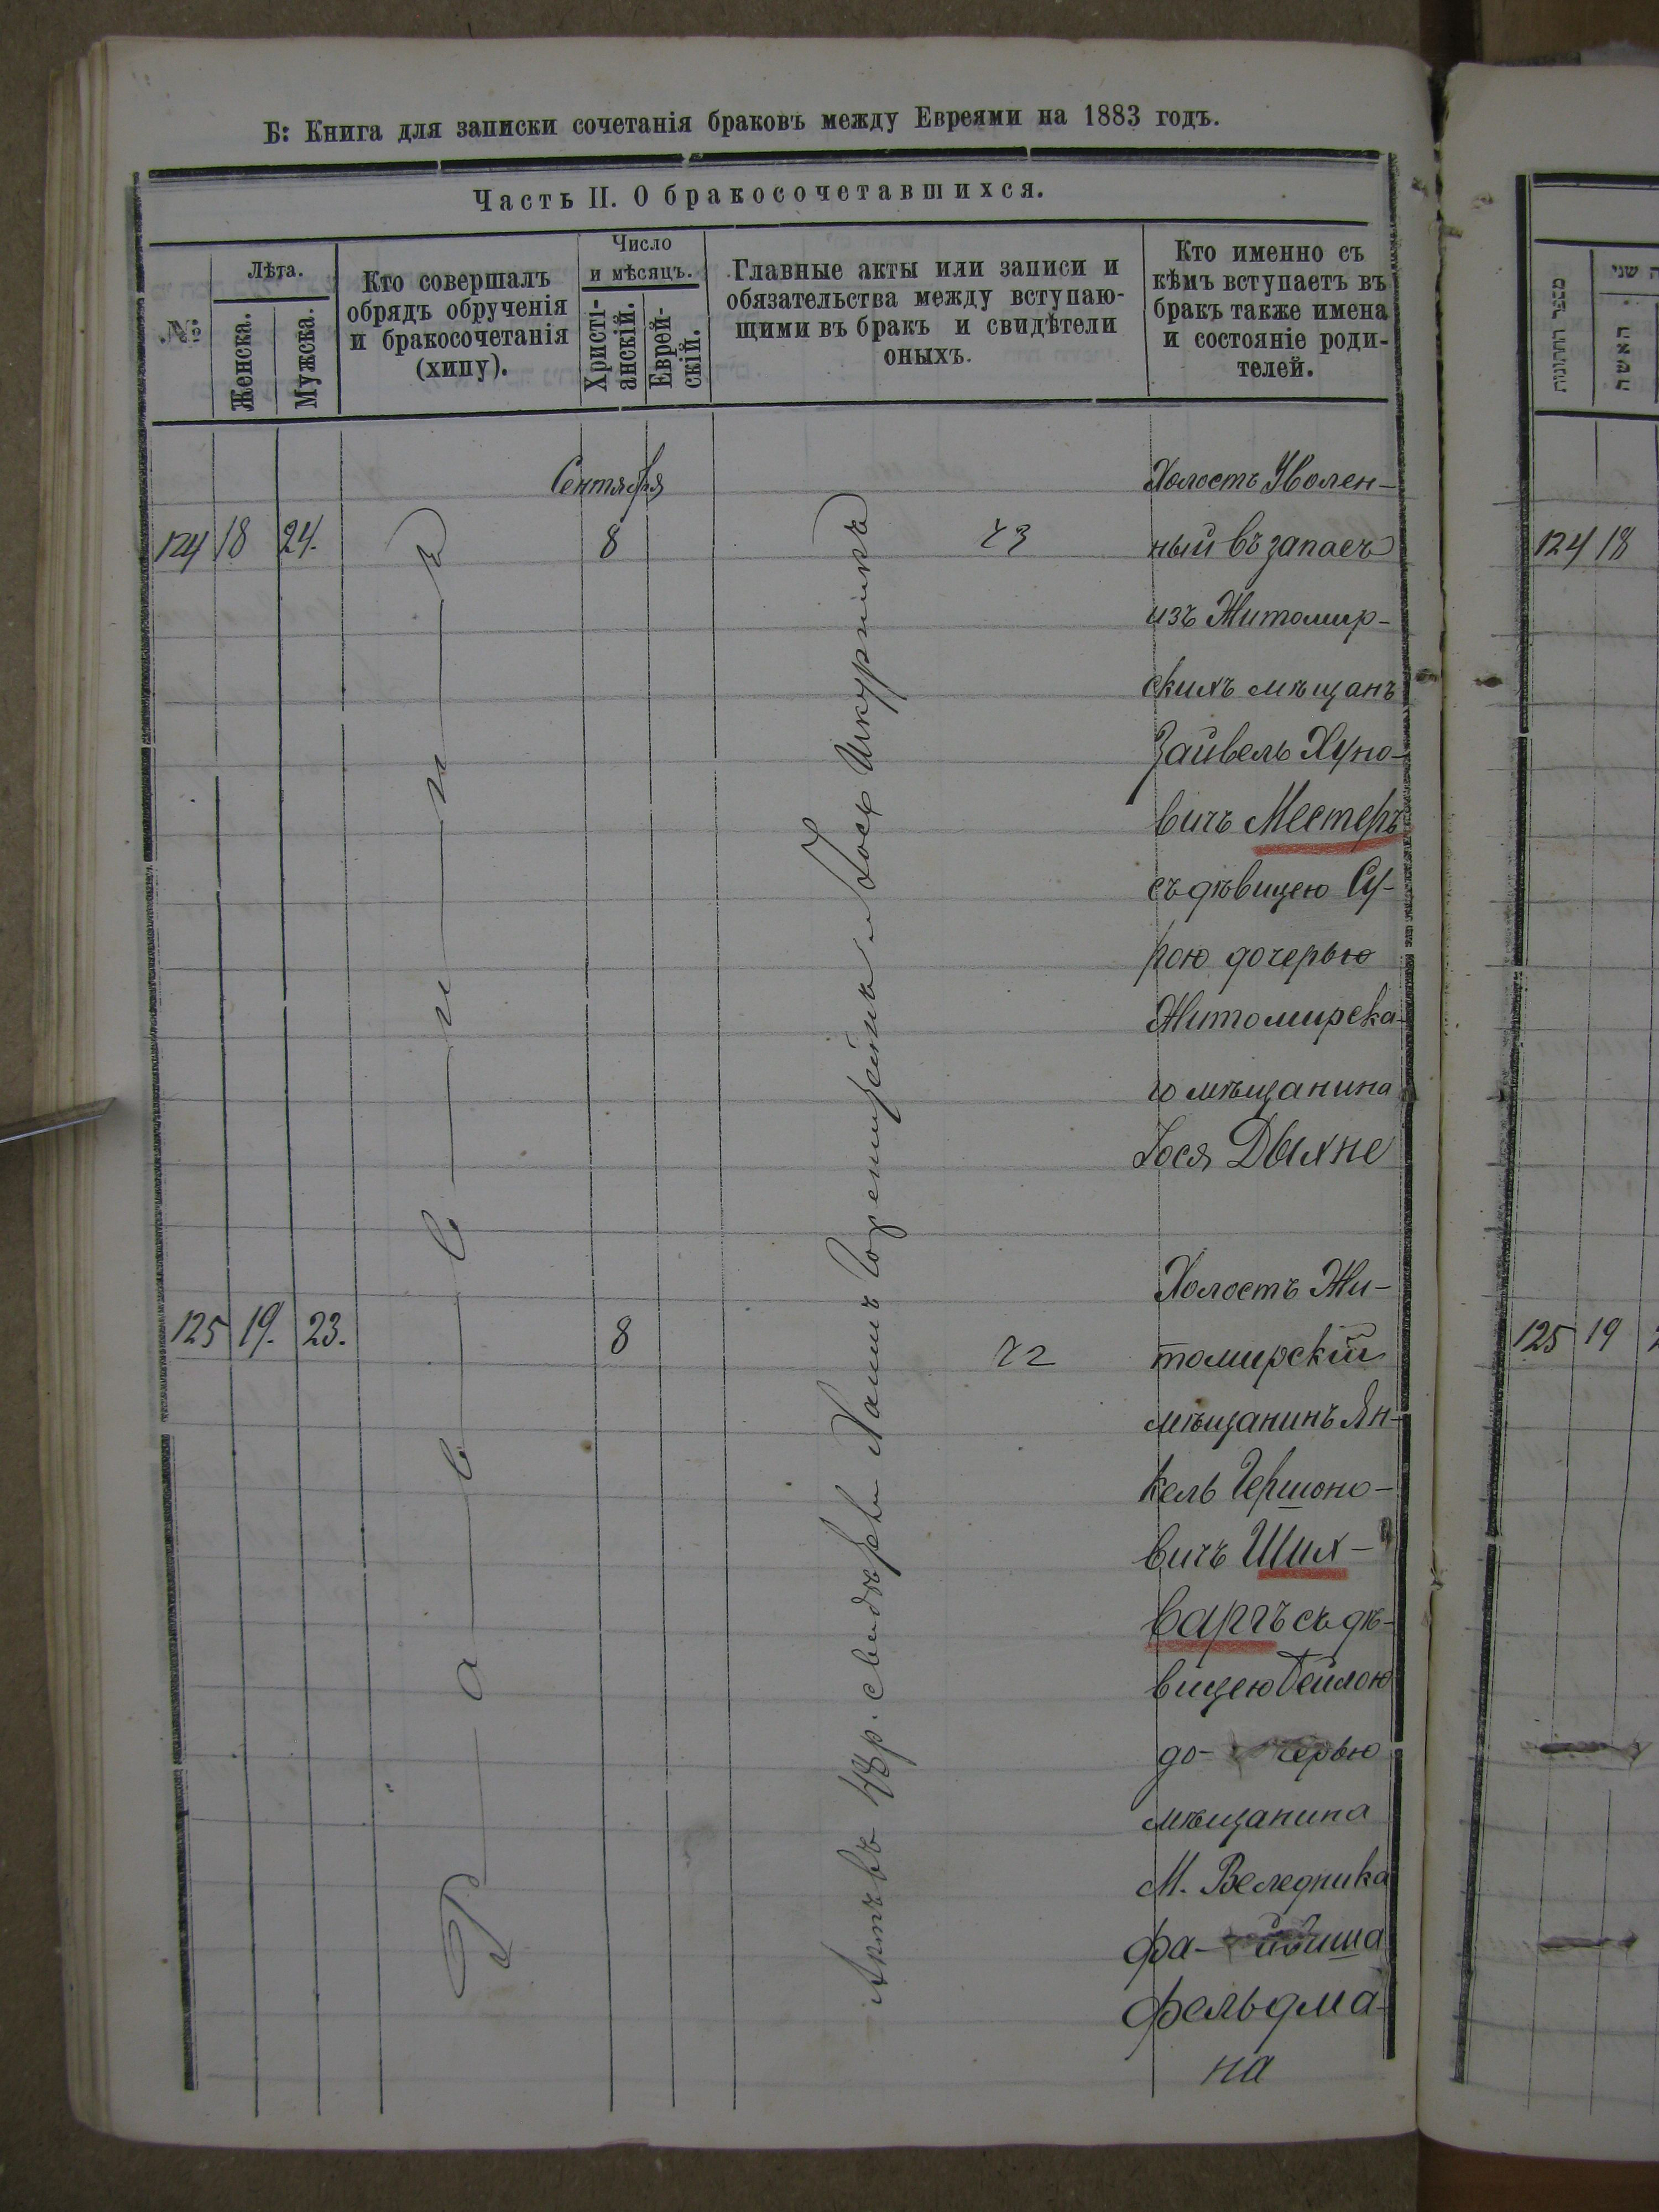 Б: Книга для записки сочетанія браковъ между Евреями на 1883 годъ.
Часть II. О бракосочетавшихся.
№
Лѣта.
Женска.
Мужска.
Кто совершалъ
обрядъ обрученія
и бракосочетанія
(хипу).
Число
и мѣсяцъ.
Христі-
анскій.
Еврей-
скій.
Главные акты или записи и
обязательства между вступаю-
щими въ бракъ и свидѣтели
оныхъ.
Кто именно съ
кѣмъ вступаетъ въ
бракъ также имена
и состояніе роди-
телей.
Сентября
124 18 24. 8
Раввинъ
свидѣтели Хаимъ Іось Шкурникъ
Холостъ Уволен-
ный въ запасъ
изъ Житомир-
скихъ мѣщанъ
Зайвель Хуно-
вичъ Местеръ
съ дѣвицею Су-
рою дочерью
Житомирска-
го мѣщанина
Іося Дыхне
125 19. 23. 8
Холостъ Жи-
томирскій
мѣщанинъ Ян-
кель Гершоно-
вичъ Ших-
варгъ съ дѣ-
вицею Бейлою
до- черью
мѣщанина
М. Веледника
Фа- йвиша
Фельдма-
на
מספר החתונות
שני
האשה
124 18
125 19